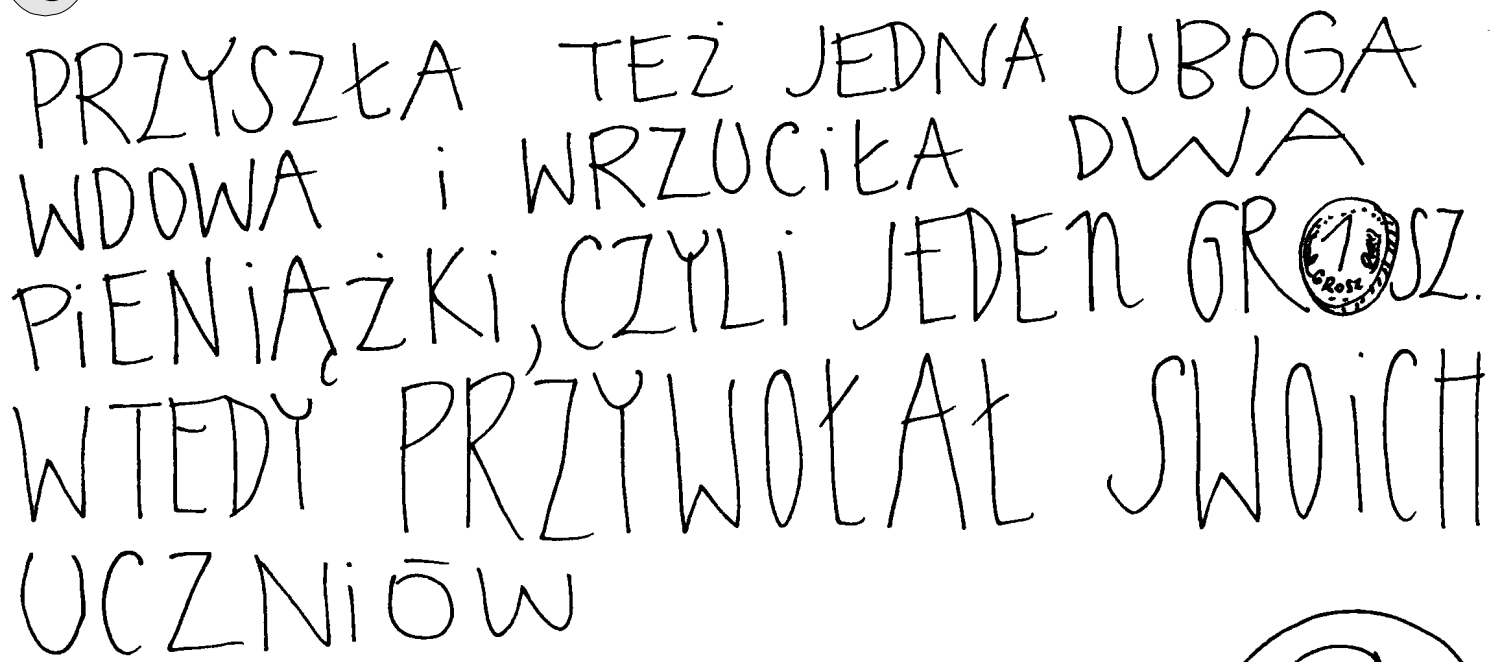 PRZYSZŁA TEŻ JEDNA UBOGA
WDOWA i WRZUCiŁA DWA
PiENiĄŻKi, CZYLi JEDEN GROSZ.
WTEDY PRZYWOŁAŁ SWOiCH
UCZNiÓW